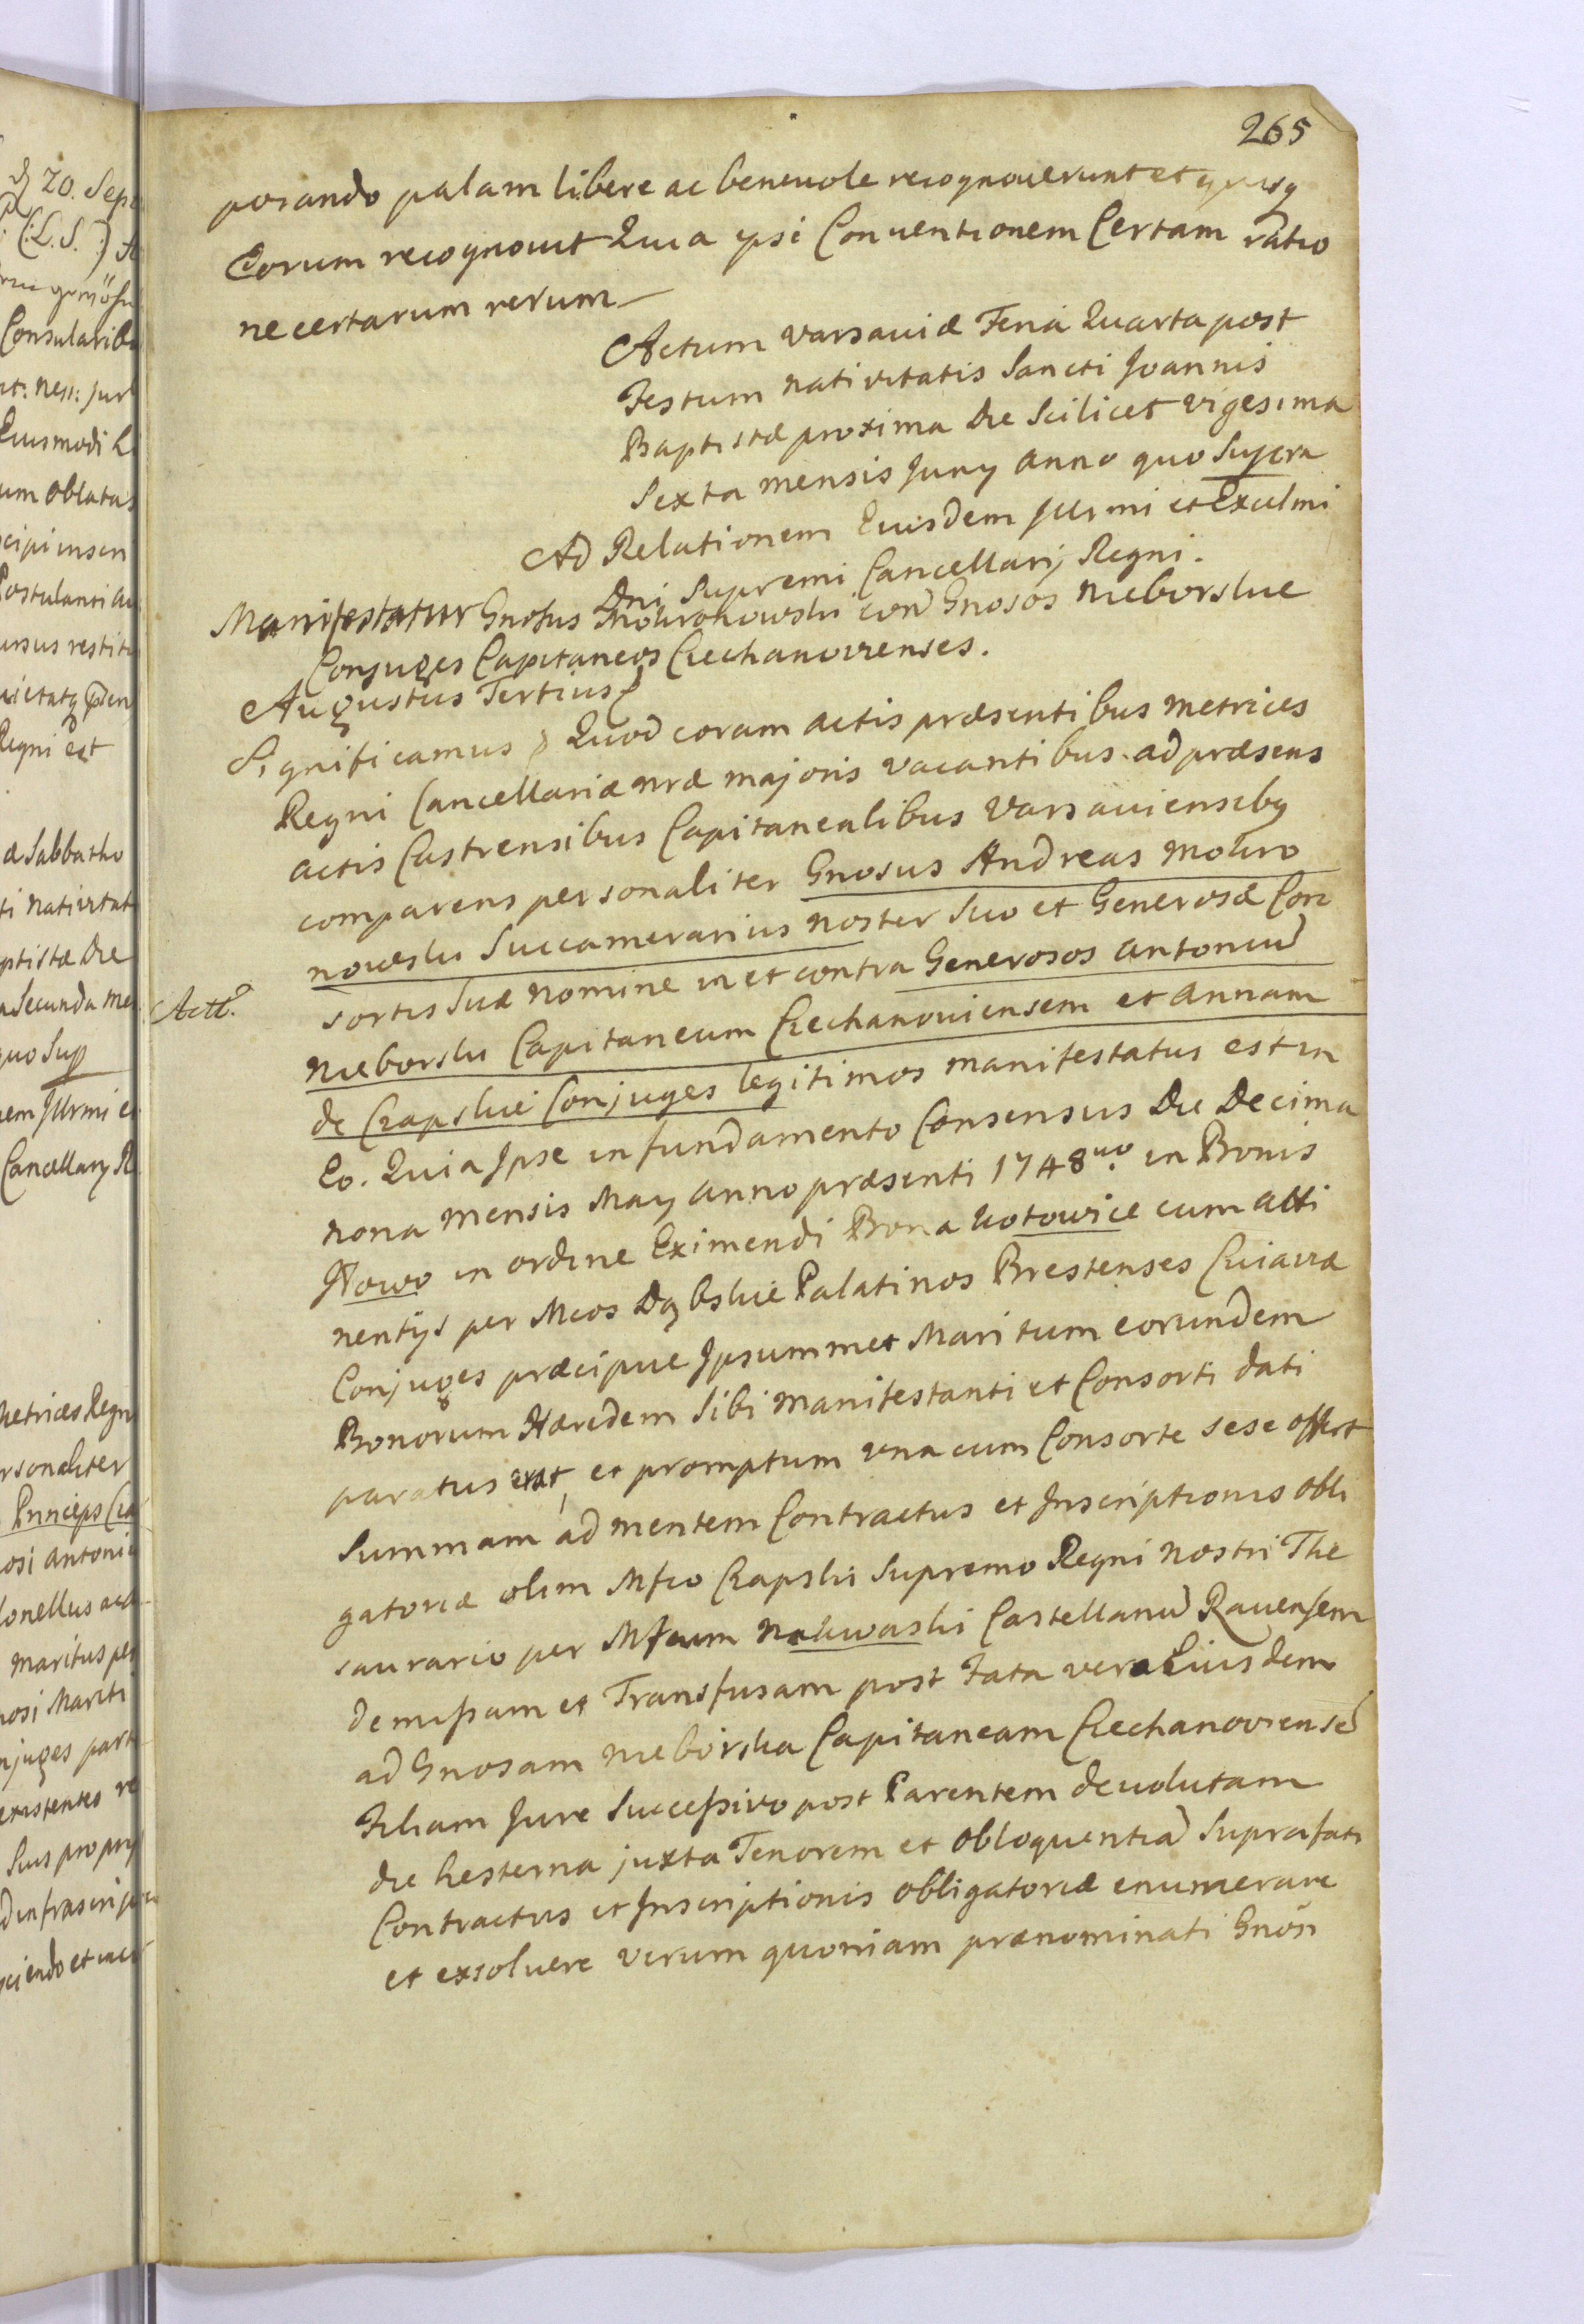 265
porando palam libere ac beneuole recognouerunt et
Eorum recognouit Quia ipsi Conuentionem Certam ratio
ne certarum rerum
Actum Varsaviæ Feria Quarta post
Festum nativitatis Sancti Joannis
Baptistæ proxima Die Scilicet vigesima
Sexta mensis Juny anno quo Supra
Ad Relationem Eiusdem Jllrmi et Excelmi
Dni Supremi Cancellarij Regni.
Manifestatur Gnosus Mokronowski con Gnosos Nieborskie
Conjuges Capitaneos Ciechanovienses.
Augustus Tertius
Significamus Quod coram actis præsentibus metrices
Regni Cancellariæ nræ majoris vacantibus ad præsens
actis Castrensibus Capitanealibus Varsauiensibq
comparens personaliter Gnosus Andreas Mokro
nowski Succamerarius noster Suo et Generosæ Con
sortis Suæ nomine in et contra Generosos Antoniu
Actt.
Nieborski Capitaneum Ciechanoviensem et Annam
de Czapskie Conjuges legitimos manifestatus est in
Eo. Quia Jpse in fundamento Consensus Die Decima
nona mensis May anno præsenti 1748uo. in Bonis
Jłowo in ordine Eximendi Bona Kotowice cum atti
nentijs per Mcos Dąbskie Palatinos Brestenses Cuiaviæ
Conjuges præcipue Jpsummet Maritum eorundem
Bonorum Hæredem Sibi manifestanti et Consorti dati
paratus erat, et promptum una cum Consorte sese offert
Summam ad mentem Contractus et Jnscriptionis obli
gatoriæ olim Mfco Czapski Supremo Regni nostri The
saurario per Mfcum Nakwaski Castellanu Ravensem
demissam et Transfusam post Fata vero Eiusdem
ad Gnosam Nieborska Capitaneam Ciechanoviense
Filiam Jure Successivo post Parentem deuolutam
die hesterna juxta Tenorem et obloquentia Suprafati
Contractus et Jnscriptionis obligatoriæ enumerare
et exsoluere verum quoniam prænominati Gnosi